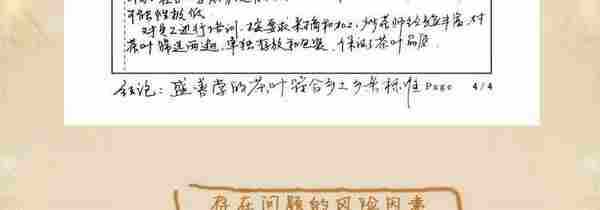 可能性极低
对员工进行培训,按要求采摘和加工,炒茶师经验丰富,对
茶叶筛选两遍,单独存放和包装,保证了茶叶品质
结论:盛善堂的茶叶符合乡土乡亲标准 Page 4/4
存在问题的风险因素